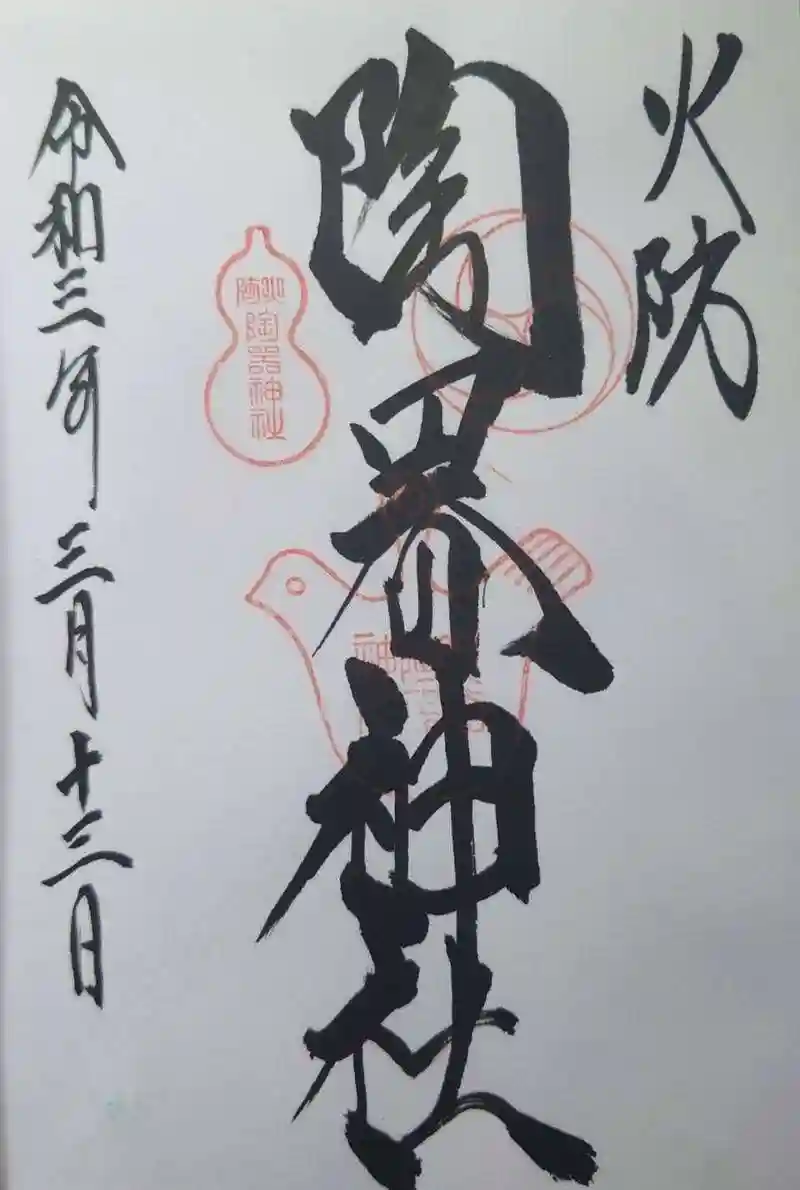 火防
陶器神社
火防
陶器神社
令和三年三月十三日